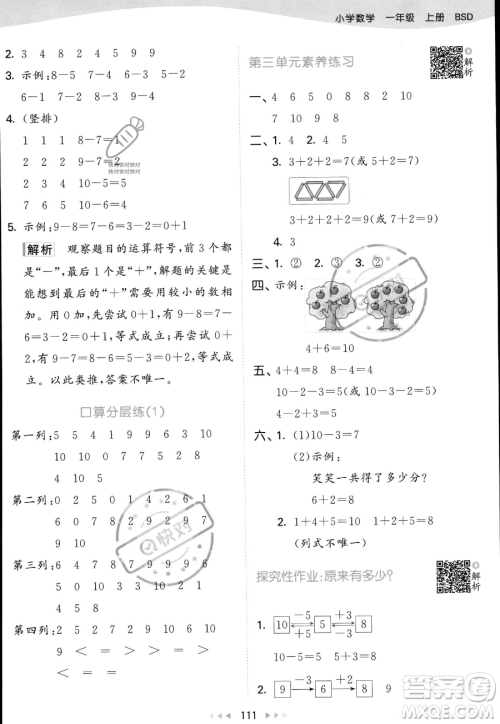 小学数学 一年级 上册 BSD
2. 3 4 8 2 9 2
3. 示例：8－5 7－4 9－6
6－1 7－2 8－3
4. (竖排)
1 1 1 8－7＝1
2 2 1 9－7＝2
3 4 2 10－5＝5
4 8 2 10－6＝4
快对快对快对
快对快对快对
5. 示例：9－8＝7－6＝3－2＝0＋1
解析 观察题目的运算符号，前 3 个都
是“－”，最后 1 个是“＋”，解题的关键是
能想到最后的“＋”需要用较小的数相
加。用 0 加，先尝试 0＋1，那么 9－8＝7－
6＝3－2＝0＋1，等式成立；再尝试 0＋2，
9－7＝7－5＝3－1＝0＋2，等式也成
立。以此类推，答案不唯一。
口算分层练(1)
第一列：5 5 4 1 9 9 6 3 9 10
10 0 0 10 7 5 2 8
4 10 5
第二列：0 2 4 1 0 2 4 9 6 1
8 7 9 2 9 10 9 7
0 8 0
第三列：6 2 9 8 4 10 9 6 9 1
4 1 8 8 7 8 8 7
2 9 8
第四列：2 4 2 7 9 5 0 10 4 0
＜ ＝ ＞ ＜ ＜ ＝
＞ ＝ ＝ ＜
快对
第三单元素养练习
解析
一、4 6 5 0 8 8 2 10
二、1. 4 2. 4 5
3. 3＋2＋2＝7(或 5＋2＝7)
3＋2＋2＝7(或 5＋2＝7)
4. 3
三、① ② ③
四、示例：
4＋6＝10
五、4－2＋6＝8
10－2－3＝5
10－4＋2＝8
六、1. (1)10－3＝7
(2)示例：
笑笑一共得了多少分？
6＋2＝8
2. 1＋4＋5＝10 1＋4＋5＝10
(列式不唯一)
探究性作业：原来有多少？
解析
1. 10 －5 5 ＋3 8
10－5＝5 5＋3＝8
2. 9 －3 6 ＋2 8
答案圈
111